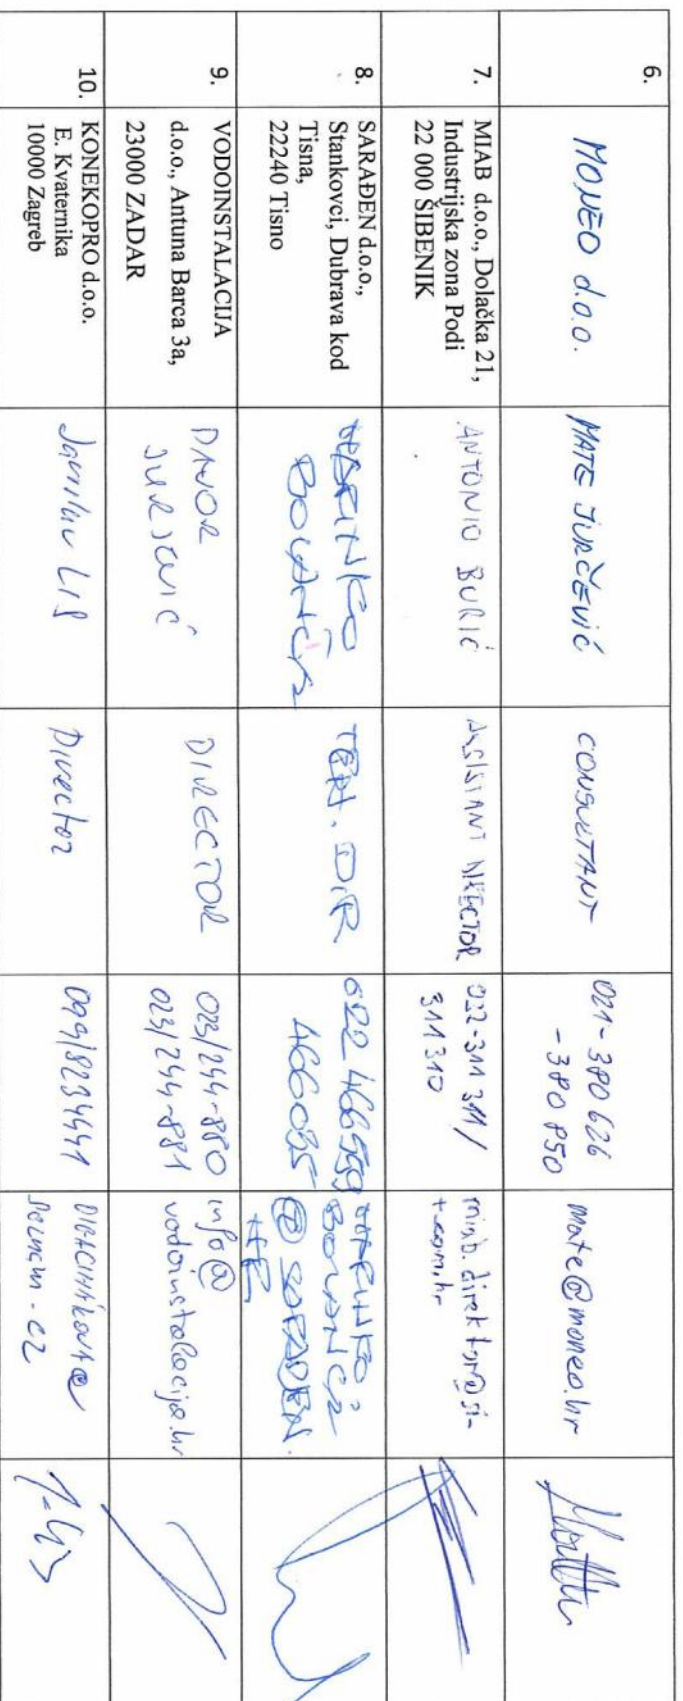 6.
MONEO d.o.o.
MATE JURČEVIĆ
CONSULTANT
021-380 626
-380 850
mate@moneo.hr
7.
MIAB d.o.o., Dolačka 21,
Industrijska zona Podi
22 000 ŠIBENIK
ANTONIO BURIĆ
ASSISTANT DIRECTOR
022-311 311/
311 310
miab.direktor@si-
t-com.hr
8.
SARAĐEN d.o.o.,
Stankovci, Dubrava kod
Tisna,
22240 Tisno
TEH. DIR.
022 466599
466035
9.
VODOINSTALACIJA
d.o.o., Antuna Barca 3a,
23000 ZADAR
DAVOR
JURJEVIĆ
DIRECTOR
023/244-880
023/244-881
info@
vodoinstalacija.hr
10.
KONEKOPRO d.o.o.
E. Kvaternika
10000 Zagreb
LIS
Director
099/8234441